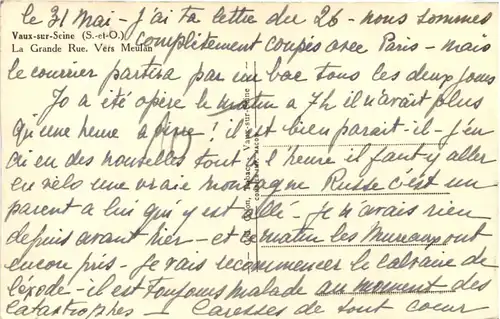 le 31 Mai - j'ai ta lettre du 26 - nous sommes
Vaux-sur-Seine (S.-et-O.)
La Grande Rue. Vers Meulan
complètement coupés avec Paris - mais
le courrier partira par un bac tous les deux jours
Jo a été opéré le matin à 7h il n'avait plus
qu'une heure à vivre ! il est bien parait-il - j'en
ai eu des nouvelles tout à l'heure il faut y aller
en vélo une vraie montagne Russe c'est un
parent à lui qui y est allé - Je n'avais rien
depuis avant hier - et ce matin les Mureaux ont
encore pris - Je vais recommencer le calvaire de
l'éxode - il est toujours malade au moment des
Catastrophes - Caresses de tout coeur
Tabacs, Vaux-sur-Seine